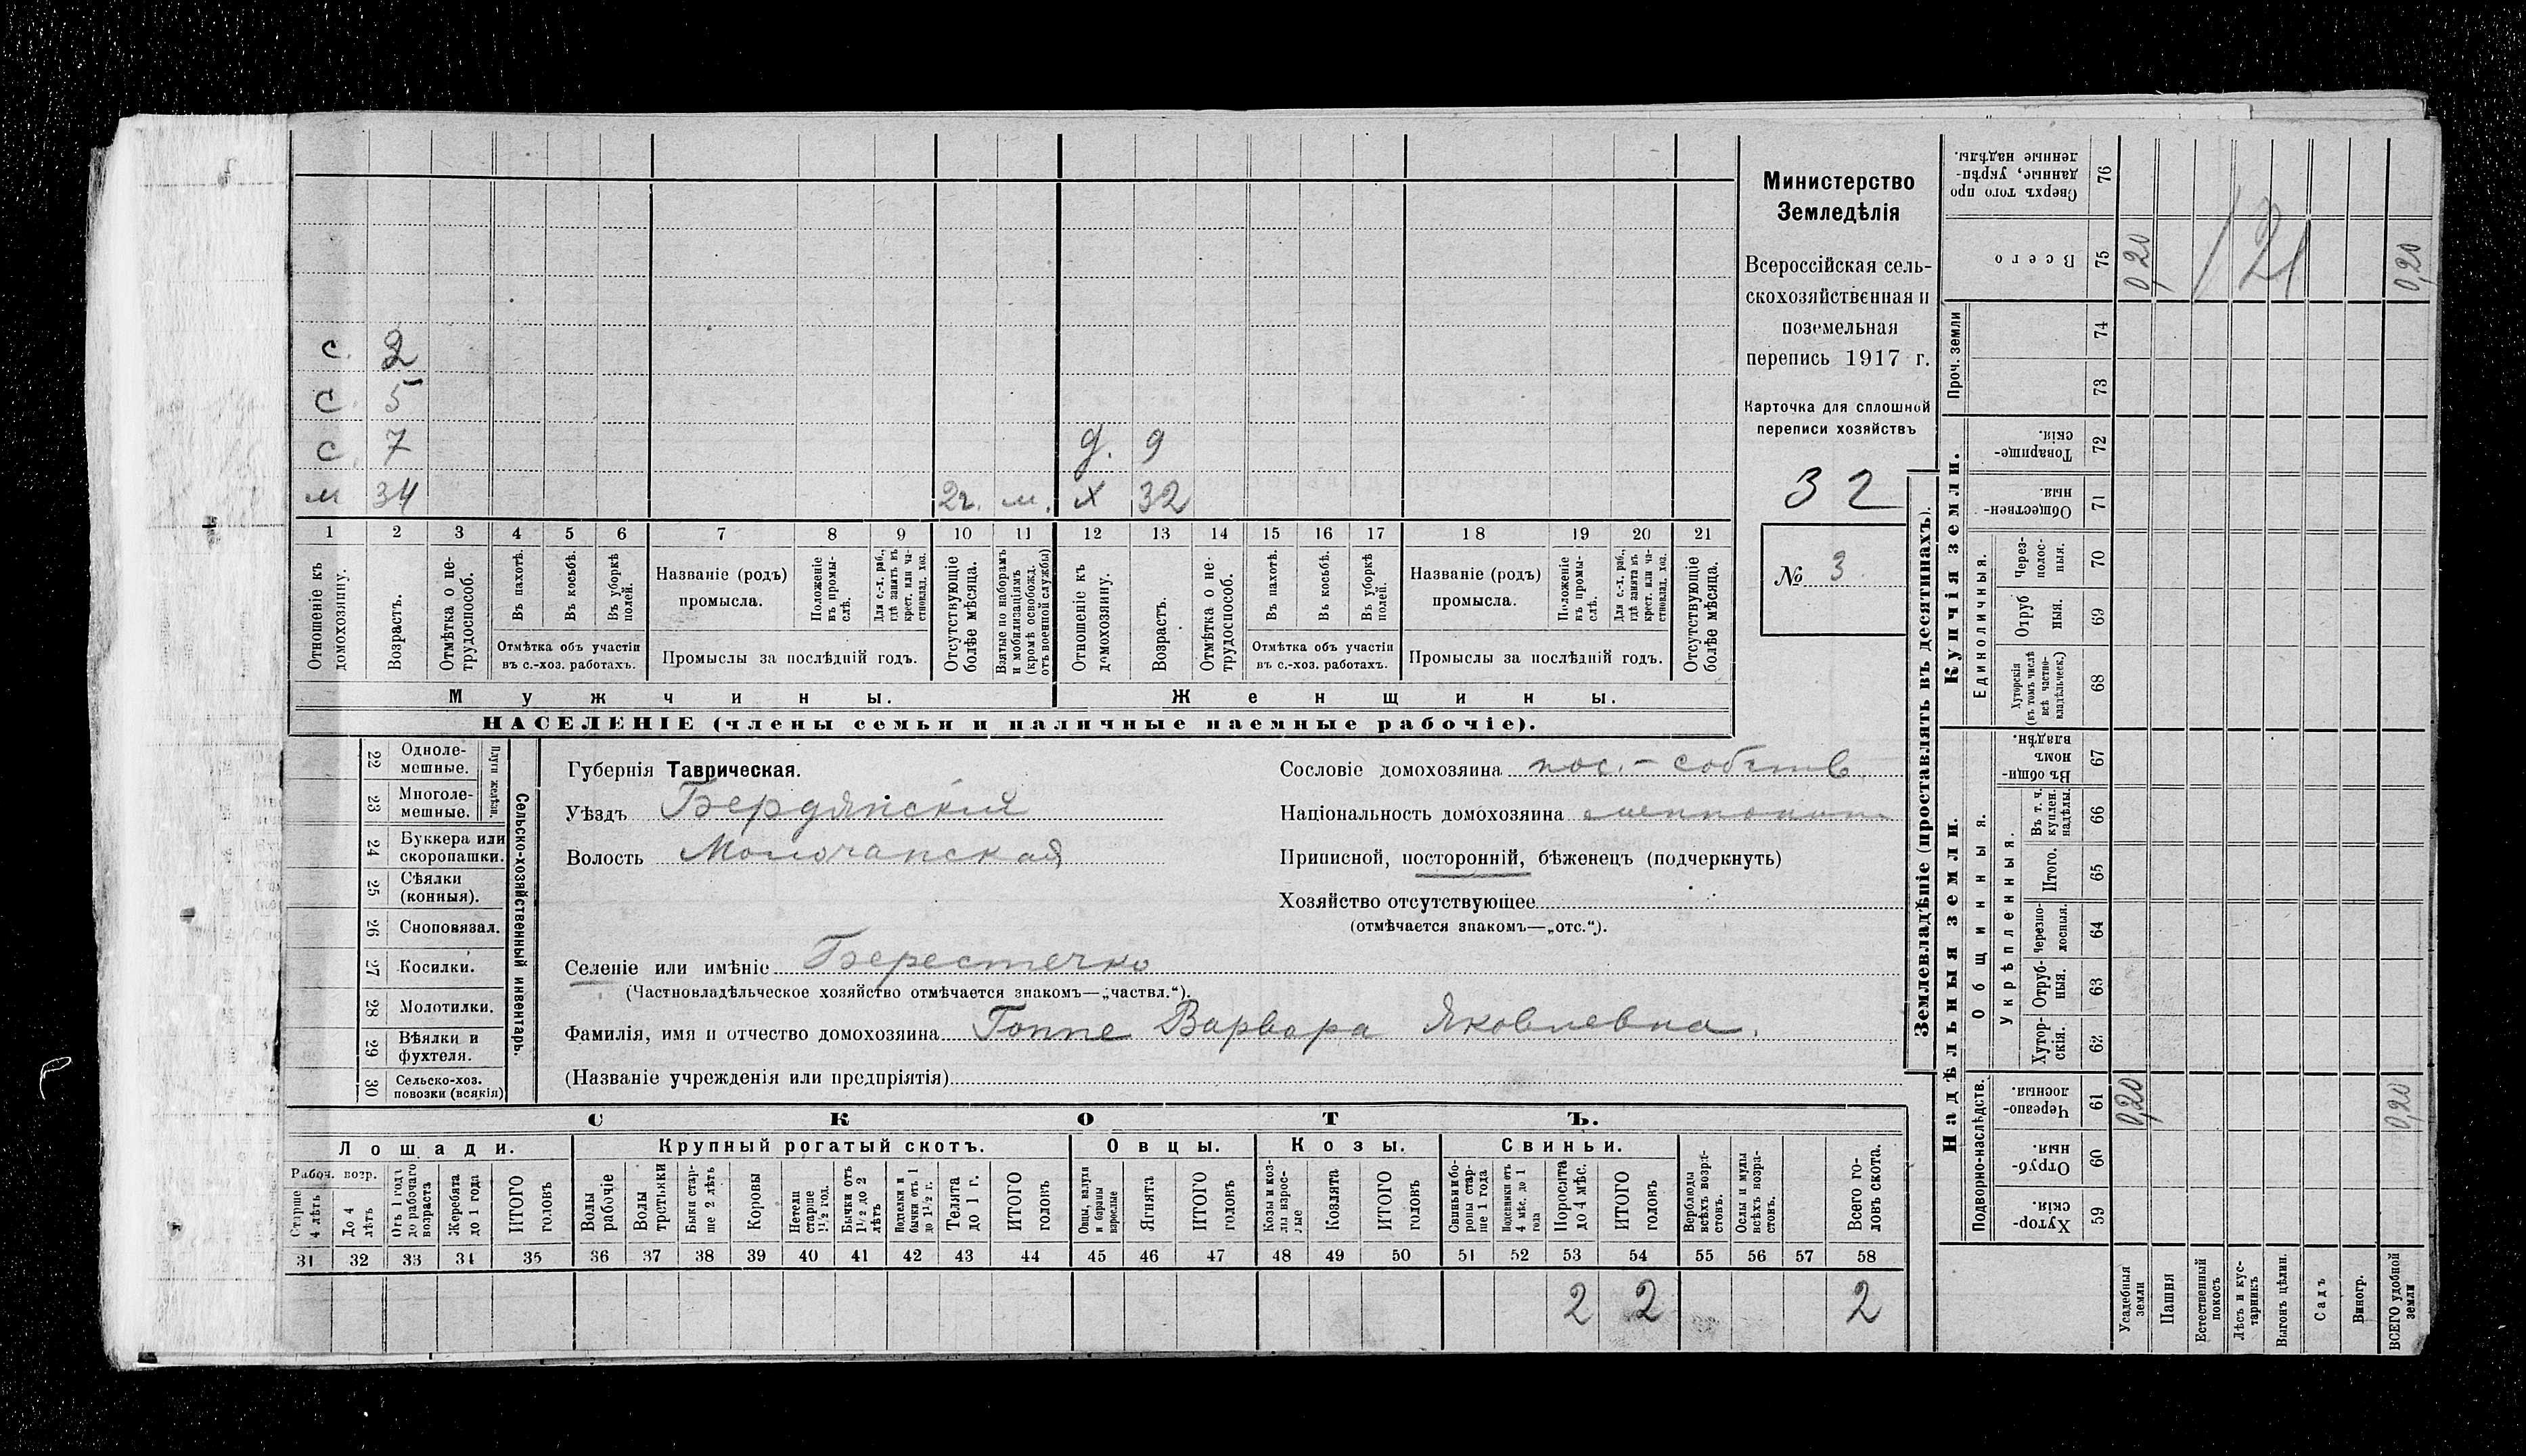 с. 2
С 5
С 7 д. 9
м 34 2г. м. х 32
1 2 3 4 5 6 7 8 9 10 11 12 13 14 15 16 17 18 19 20 21
Отношеніе къ домохозяину.
Возрастъ.
Отмѣтка о не-трудоспособ.
Въ пахотѣ.
Въ косьбѣ.
Въ уборкѣ полей.
Отмѣтка объ участіи
въ с.-хоз. работахъ.
Названіе (родъ)
промысла.
Положеніе въ промы-слѣ.
Для с.-х. раб., гдѣ занятъ въ крест. или ча-стновлад. хоз.
Промыслы за послѣдній годъ.
Отсутствующіе болѣе мѣсяца.
Взятые по наборамъ и мобилизаціямъ (кромѣ освобожд. отъ военной службы)
Отношеніе къ домохозяину.
Возрастъ.
Отмѣтка о не-трудоспособ.
Въ пахотѣ.
Въ косьбѣ.
Въ уборкѣ полей.
Отмѣтка объ участіи
въ с.-хоз. работахъ.
Названіе (родъ)
промысла.
Положеніе въ промы-слѣ.
Для с.-х. раб., гдѣ занята въ крест. или ча-стновлад. хоз.
Промыслы за послѣдній годъ.
Отсутствующіе болѣе мѣсяца.
Мужчины. Женщины.
НАСЕЛЕНІЕ (члены семьи и наличные наемные рабочіе).
Министерство
Земледѣлія
Всероссійская сель-
скохозяйственная и
поземельная
перепись 1917 г.
Карточка для сплошной
переписи хозяйствъ
32
№ 3
22 Одноле-мешные.
23 Многоле-мешные.
Плуги желѣзн.
24 Буккера или скоропашки.
25 Сѣялки (конныя).
26 Сноповязал.
27 Косилки.
28 Молотилки.
29 Вѣялки и фухтеля.
30 Сельско-хоз. повозки (всякія)
Сельско-хозяйственный инвентарь.
Губернія Таврическая.
Уѣздъ Бердянскій
Волость Молочанская
Сословіе домохозяина пос.-собств
Національность домохозяина меннонит
Приписной, посторонній, бѣженецъ (подчеркнуть)
Хозяйство отсутствующее
(отмѣчается знакомъ—„отс.“).
Селеніе или имѣніе Берестечко
(Частновладѣльческое хозяйство отмѣчается знакомъ—„частвл.“).
Фамилія, имя и отчество домохозяина Гоппе Варвара Яковлевна.
(Названіе учрежденія или предпріятія)
СКОТЪ.
Лошади. Крупный рогатый скотъ. Овцы. Козы. Свиньи.
Рабоч. возр.
Старше 4 лѣтъ
До 4 лѣтъ
Отъ 1 года до рабочаго возраста
Жеребята до 1 года
ИТОГО головъ
Волы рабочіе
Волы третьяки
Быки стар-ше 2 лѣтъ
Коровы
Нетели старше 1½ год.
Бычки отъ 1½ до 2 лѣтъ
Подтелки и бычки отъ 1 до 1½ г.
Телята до 1 г.
ИТОГО головъ
Овцы, валухи и бараны взрослые
Ягнята
ИТОГО головъ
Козы и коз-лы взрос-лые
Козлята
ИТОГО головъ
Свиньи и бо-ровы стар-ше 1 года
Подсвинки отъ 4 мѣс. до 1 года
Поросята до 4 мѣс.
ИТОГО головъ
Верблюды всѣхъ возра-стовъ.
Ослы и мулы всѣхъ возра-стовъ.
Всего го-ловъ скота.
31 32 33 34 35 36 37 38 39 40 41 42 43 44 45 46 47 48 49 50 51 52 53 54 55 56 57 58
2 2 2
Землевладѣніе (проставлять въ десятинахъ).
Купчія земли.
Надѣльныя земли.
Сверхъ того про данные, укрѣп-ленные надѣлы. 76
Всего 75 0,20 0,20
121
Проч. земли 74
73
Товарище-скія. 72
Обществен-ныя. 71
Единоличныя.
Через-полос-ныя. 70
Отруб ныя. 69
Хуторскія (въ томъ числѣ всѣ частно-владѣльческ.) 68
Общинныя.
Въ общи-номъ владѣн. 67
Укрѣпленныя.
Въ т. ч. куплен. надѣлы. 66
Итого. 65
Черезпо-лосныя. 64
Отруб-ныя. 63
Хутор-скія. 62
Подворно-наслѣдств.
Черезпо-лосныя. 61 0,20 0,20
Отруб-ныя. 60
Хутор-скія. 59
Усадебныя земли
Пашня
Естественный покосъ
Лѣсъ и кус-тарникъ
Выгонъ цѣлин.
Садъ
Виногр.
ВСЕГО удобной земли